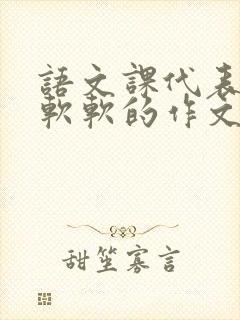 語文課代表
軟軟的作文
甜笙寡言